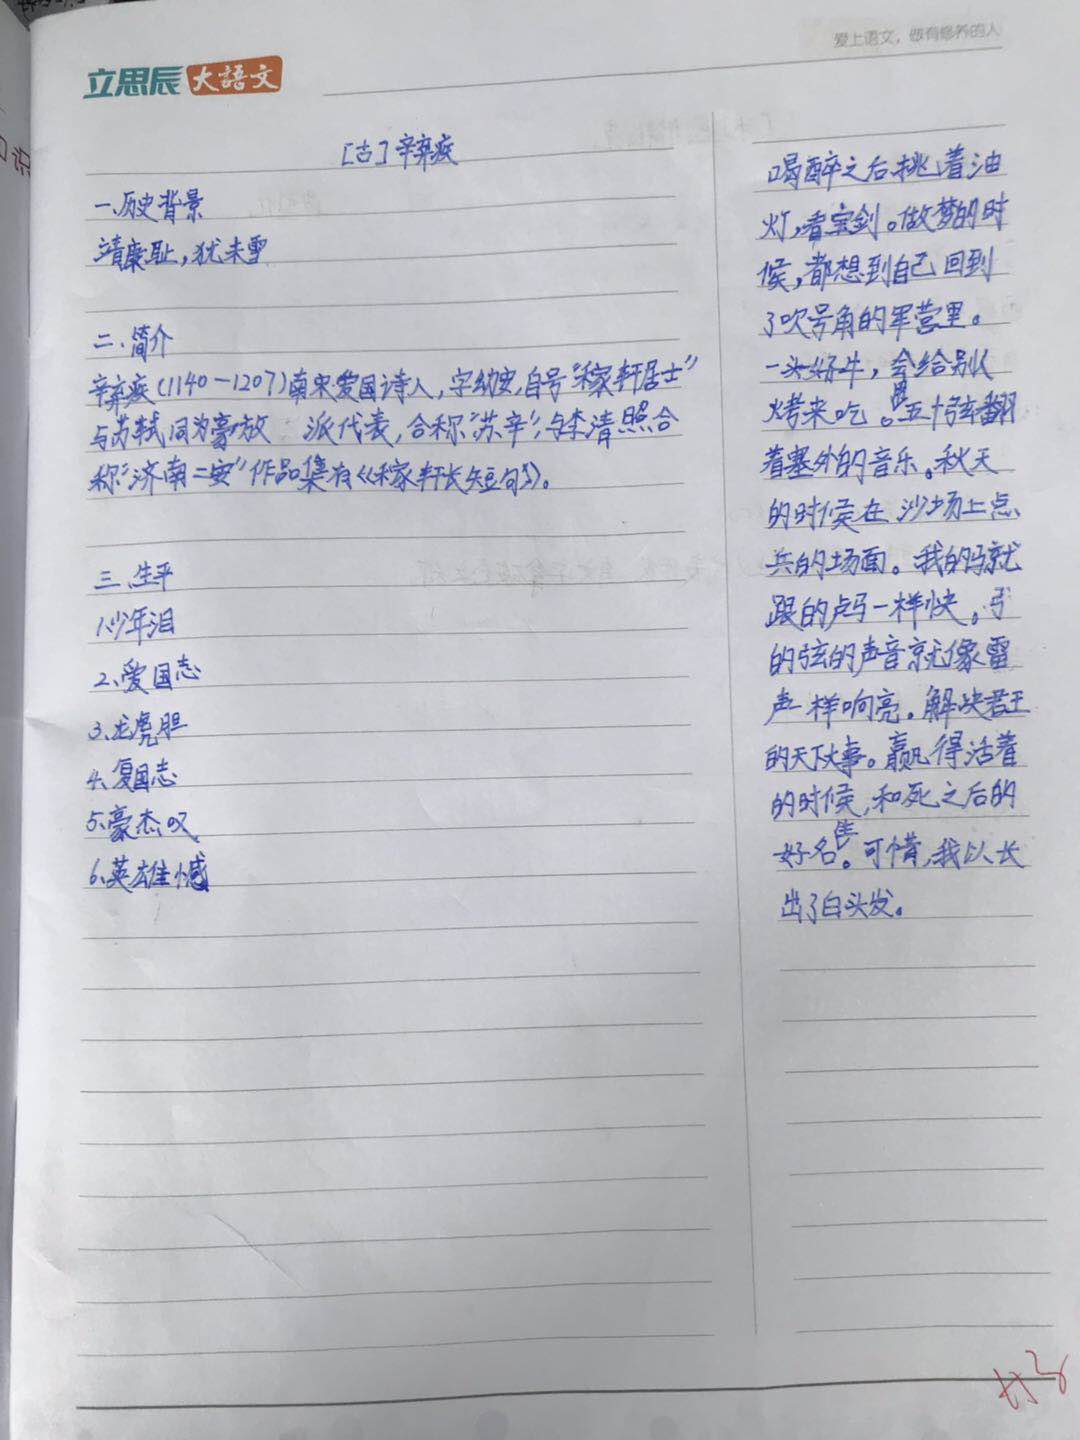 爱上语文，做有修养的人
立思辰大語文
[古]辛弃疾
一、历史背景
靖康耻，犹未雪
二、简介
辛弃疾(1140-1207)南宋爱国诗人，字幼安，自号“稼轩居士”
与苏轼同为豪放 派代表，合称“苏辛”，与李清照合
称“济南二安”作品集有《稼轩长短句》。
三、生平
1、少年泪
2、爱国志
3、龙虎胆
4、复国志
5、豪杰叹
6、英雄憾
喝醉之后挑着油
灯，看宝剑。做梦的时
候，都想到自己回到
了吹号角的军营里。
一头好牛，会给别人
烤来吃。五十弦翻
着塞外的音乐。秋天
的时候在沙场上点
兵的场面。我的马就
跟的卢一样快。弓
的弦的声音就像雷
声一样响亮。解决君王
的天下大事。赢得活着
的时候，和死之后的
好名声。可惜，我以长
出了白头发。